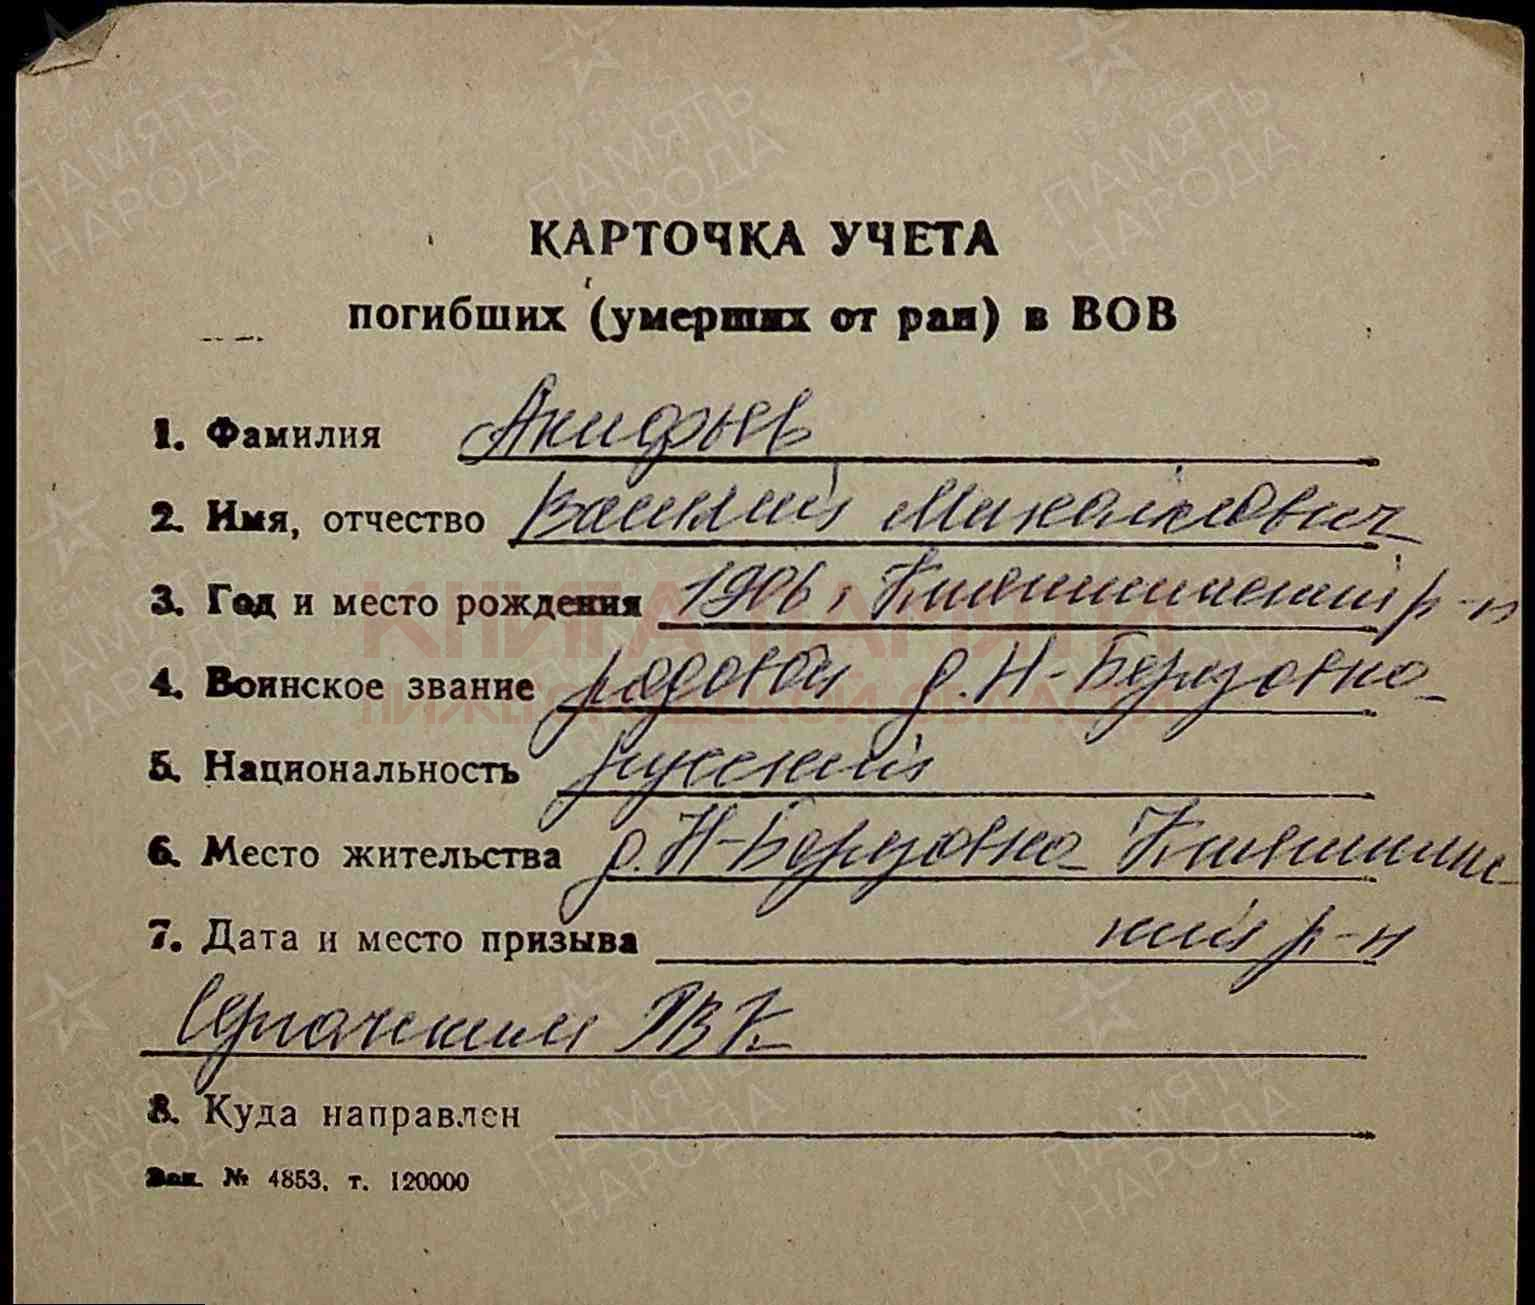 КАРТОЧКА УЧЕТА
погибших (умерших от ран) в ВОВ
1. Фамилия Акифьев
2. Имя, отчество Василий Михайлович
3. Год и место рождения 1906, Княгининский р-н
4. Воинское звание рядовой д. Н-Березовка
5. Национальность русский
6. Место жительства д. Н-Березовка Княгининс-
7. Дата и место призыва кий р-н
Сергачским РВК
8. Куда направлен
Зак. № 4853, т. 120000
КНИГА ПАМЯТИ
НИЖЕГОРОДСКОЙ ОБЛАСТИ
ПАМЯТЬ
НАРОДА